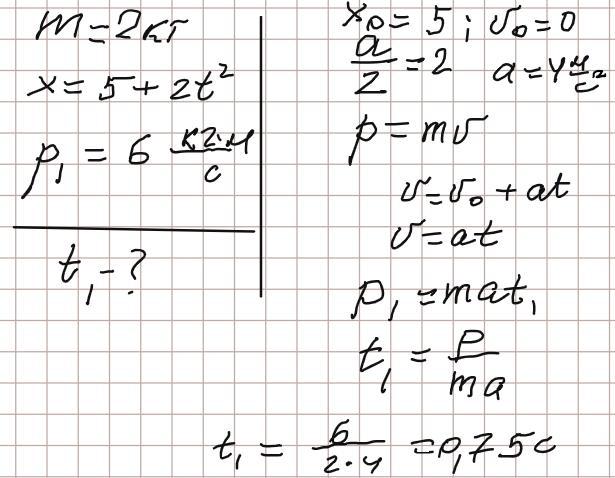 m=2кг
x=5+2t²
p₁ = 6 кг·м/с
t₁-?
x₀=5; v₀=0
a/2=2 a=4м/с²
p=mv
v=v₀+at
v=at
p₁=mat₁
t₁=p/ma
t₁=6/2·4=0,75с